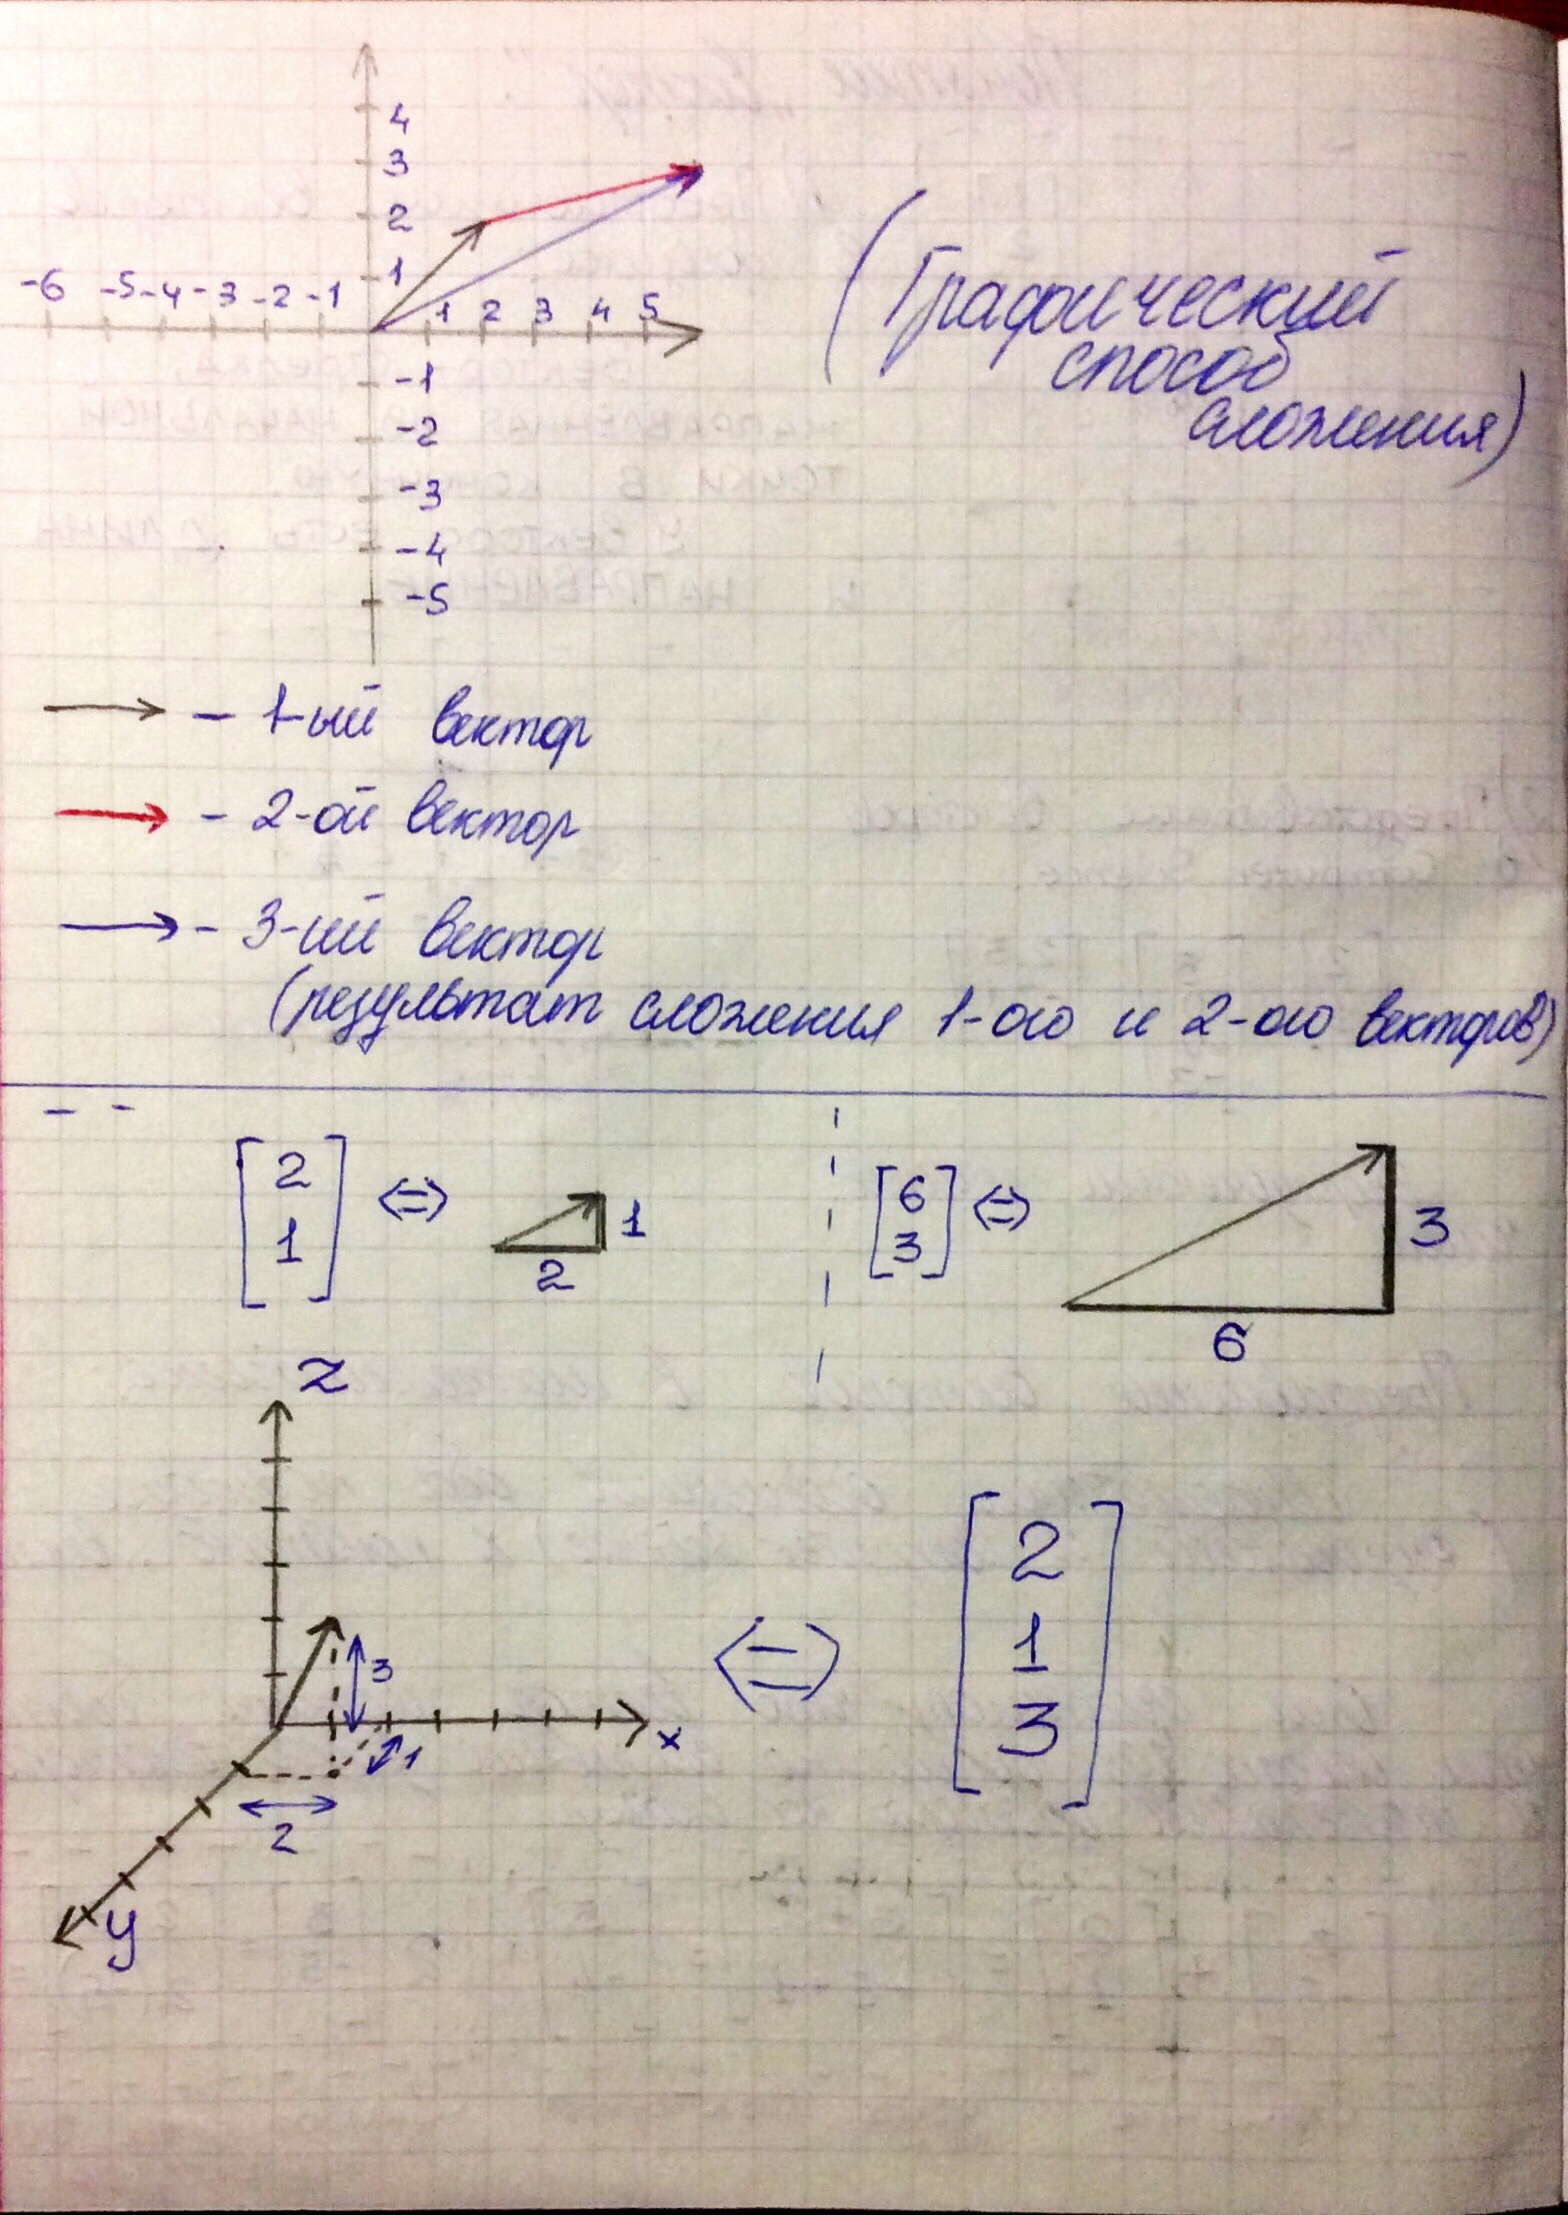 4
3
2
1
-6 -5 -4 -3 -2 -1 1 2 3 4 5
-1
-2
-3
-4
-5
(Графический
способ
сложения)
- 1-ый вектор
- 2-ой вектор
- 3-ий вектор
(результат сложения 1-ого и 2-ого векторов)
[2 1] <=> 2 1
[6 3] <=> 6 3
z
3
x
1
2
y
<=>
[2
1
3]